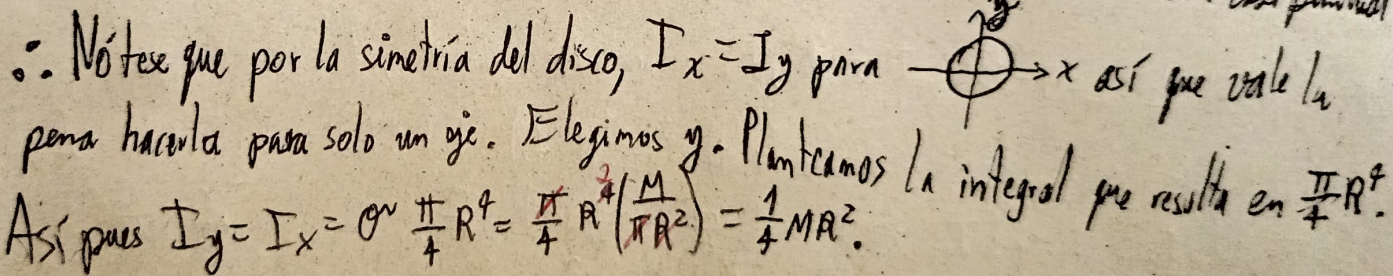 ∴ Nótese que por la simetría del disco, I_x = I_y para y x así que vale la
pena hacerla para solo un eje. Elegimos y. Planteamos la integral que resulta en π/4 R⁴.
Así pues I_y = I_x = σ π/4 R⁴ = π/4 R⁴² (M/πR²) = 1/4 MR².